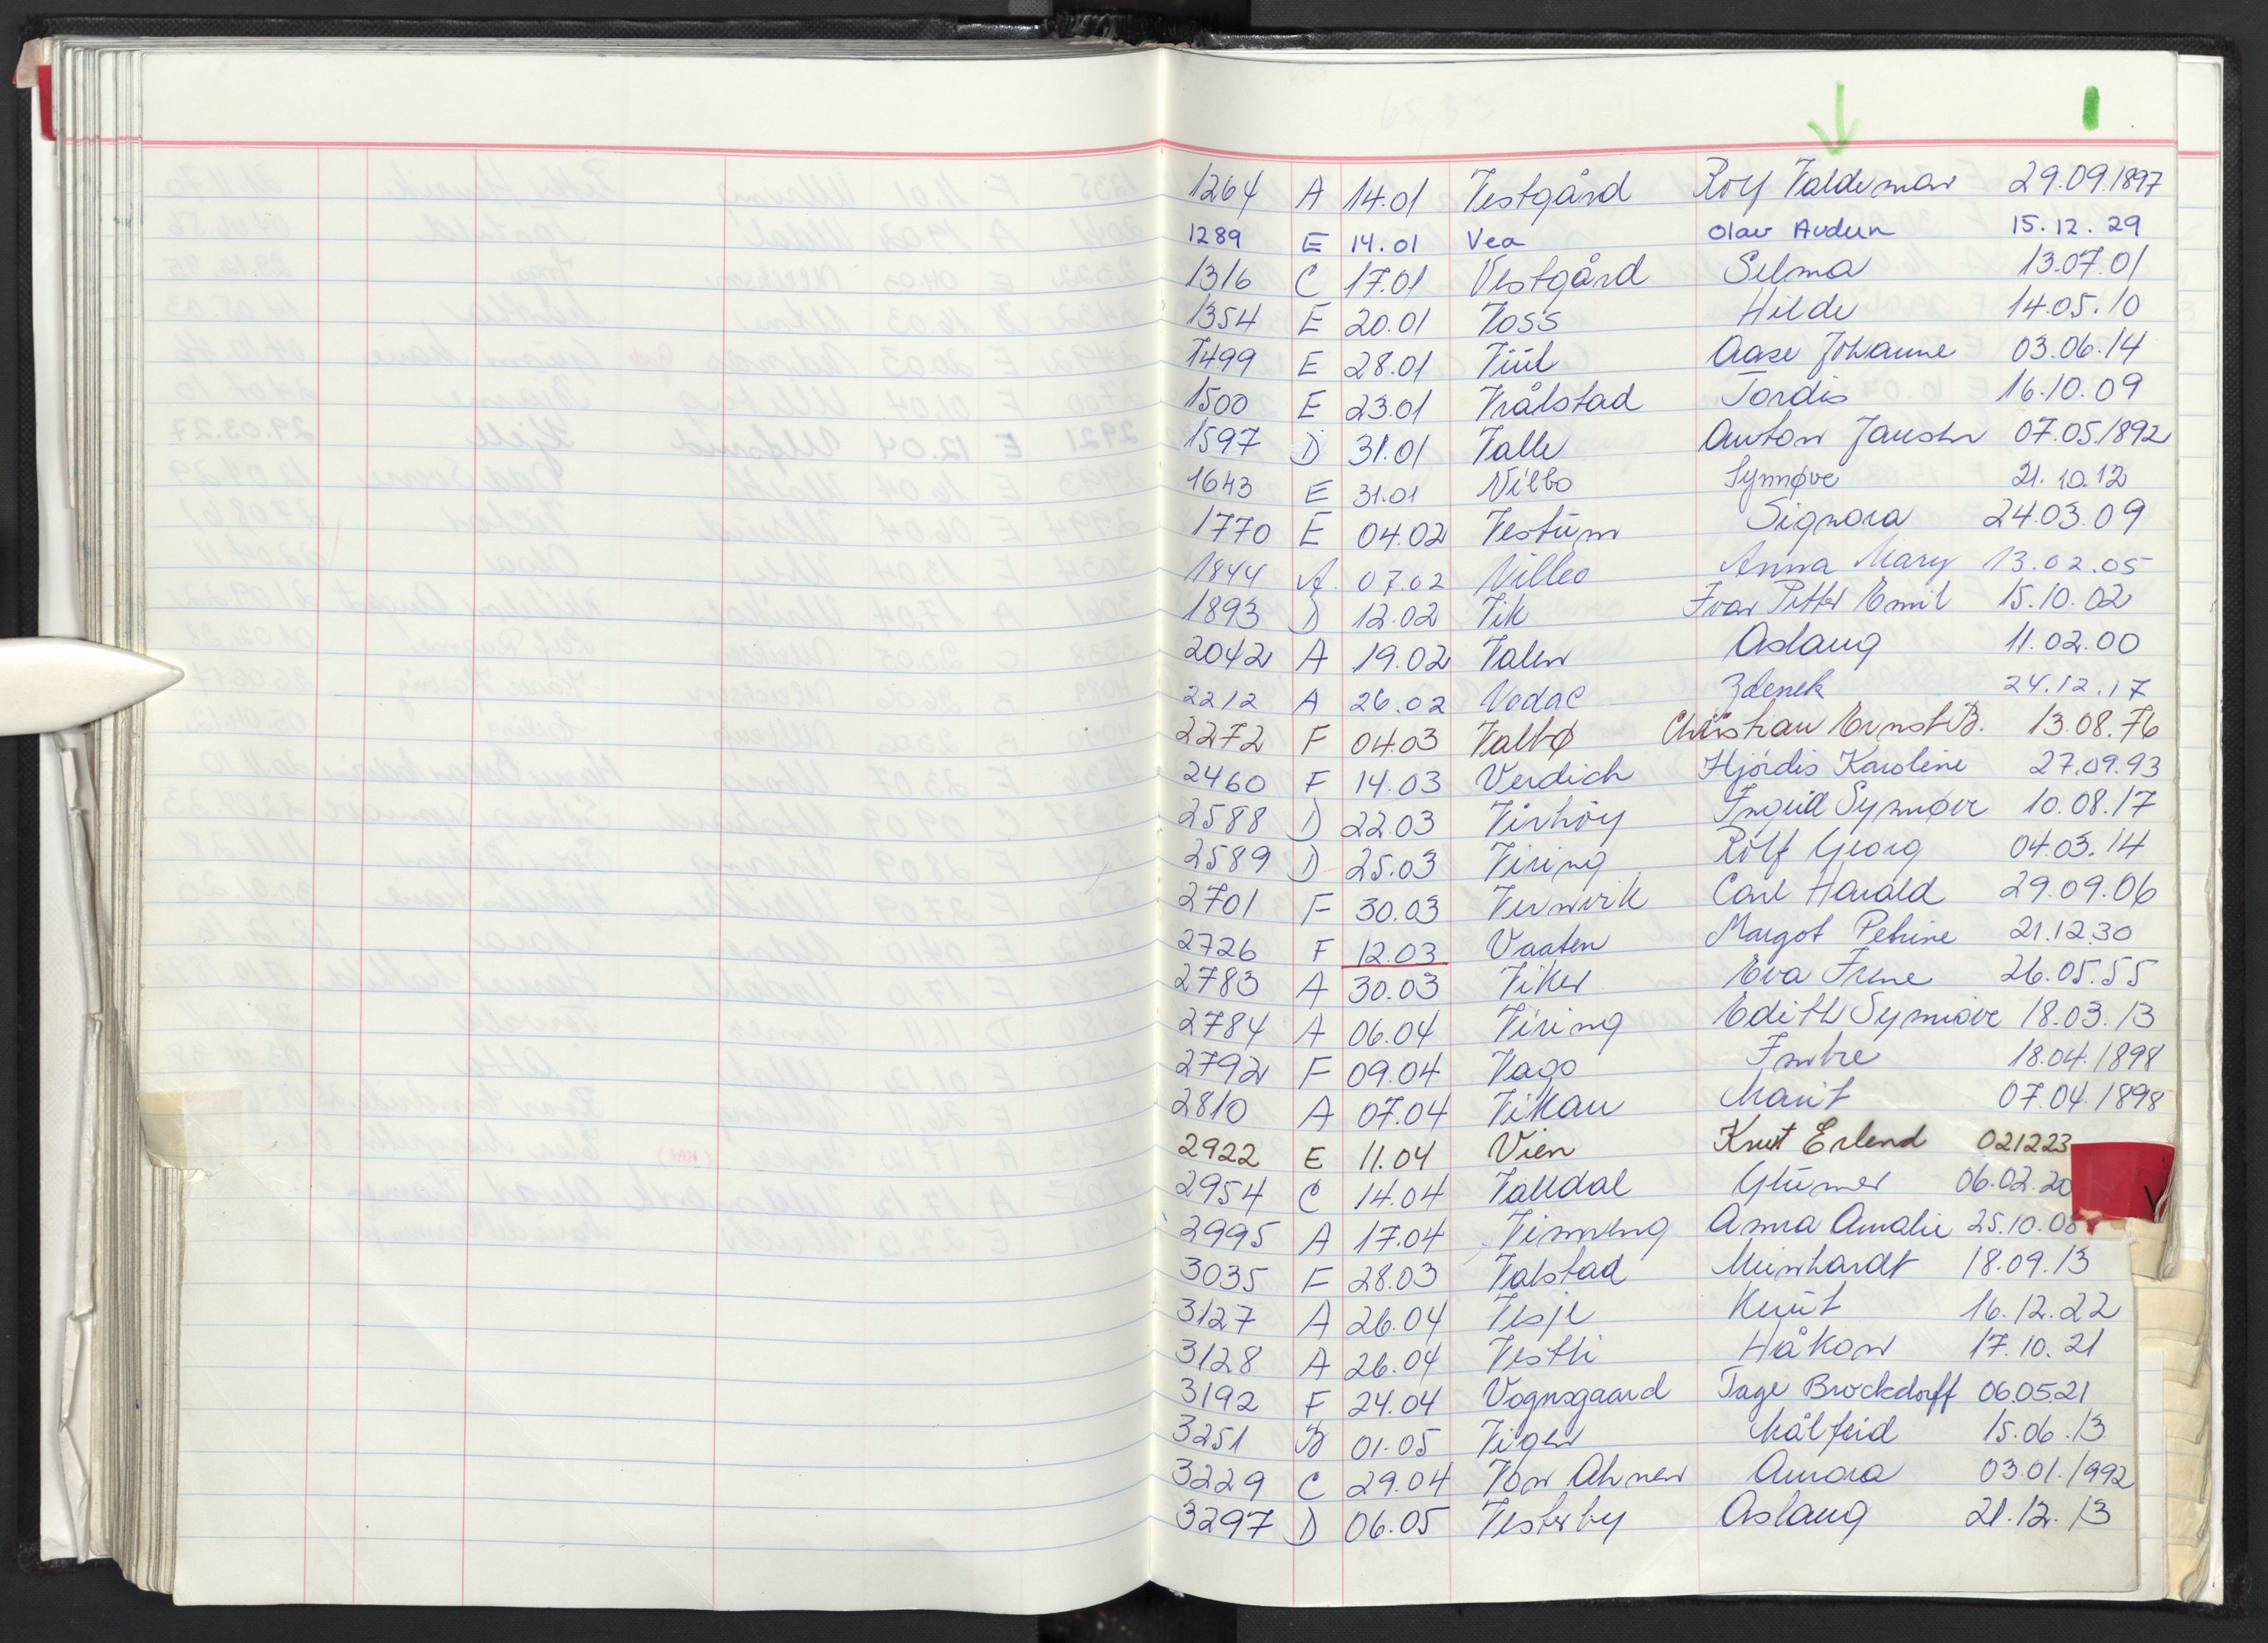 1264 A 14.01 Vestgård Rolf Valdemar 29.09.1897
1289 E 14.01 Vea Olav Audun 15.12.29
1316 C 17.01 Vestgård Selma 13.07.01
1354 E 20.01 Voss Hilde 14.05.10
1499 E 28.01 Aase Johanne 03.06.14
1500 E 23.01 Vrålstad Tordis 16.10.09
1597 D 31.01 Valle Anton Jensen 07.05.1892
1643 E 31.01 Vilbo Synnøve 21.10.12
1770 E 04.02 Vestum Signora 24.03.09
1844 A 07.02 Anna Mary 13.02.05
1893 D 12.02 Vik Ivar Petter Emil 15.10.02
2042 A 19.02 Valen Aslaug 11.02.00
2212 A 26.02 Vodac Zdenek 24.12.17
2272 F 04.03 Valbø Christian Ernst B. 13.08.76
2460 F 14.03 Verdich Hjørdis Karoline 27.09.93
2588 D 22.03 Ingrid Synnøve 10.08.17
2589 D 25.03 Viring Rolf Georg 04.03.14
2701 F 30.03 Vernvik Carl Harald 29.09.06
2726 F 12.03 Vaaten Margot Petrine 21.12.30
2783 A 30.03 Viker Eva Irene 26.05.55
2784 A 06.04 Viring Edith Synnøve 18.03.13
2792 F 09.04 Vago Imbre 18.04.1898
2810 A 07.04 Vikan Marit 07.04.1898
2922 E 11.04 Vien Knut Erlend 021223
2954 C 14.04 Valldal Glümer 06.02.20
2995 A 17.04 Vinneng Anna Amalie 25.10.08
3035 F 28.03 Valstad Meinhardt 18.09.13
3127 A 26.04 Vesje Knut 16.12.22
3128 A 26.04 Vestli Håkon 17.10.21
3192 F 24.04 Vognsgaard Tage Brockdorff 06.05.21
3251 B 01.05 Viger Målfrid 15.06.13
3229 C 29.04 Von Ahnen Aurora 03.01.1992
3297 D 06.05 Vesterby Aslaug 21.12.13